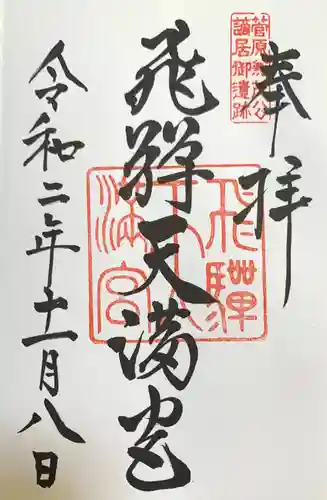 奉拝
菅原兼茂公
謫居御遺跡
飛騨天満宮
飛騨天満宮
令和二年十一月八日